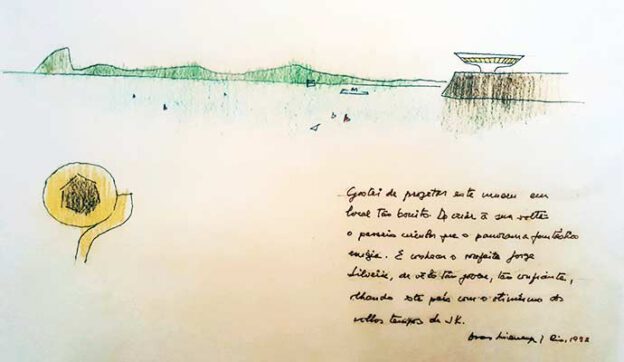 Gostei de projetar este museu em
local tão bonito. De criar à sua volta
o passeio circular que o panorama fantástico
exigia. E conhecer o prefeito Jorge
Silveira, de vê-lo tão jovem, tão confiante,
olhando este país com o otimismo dos
velhos tempos de JK.
Oscar Niemeyer / Rio, 1992